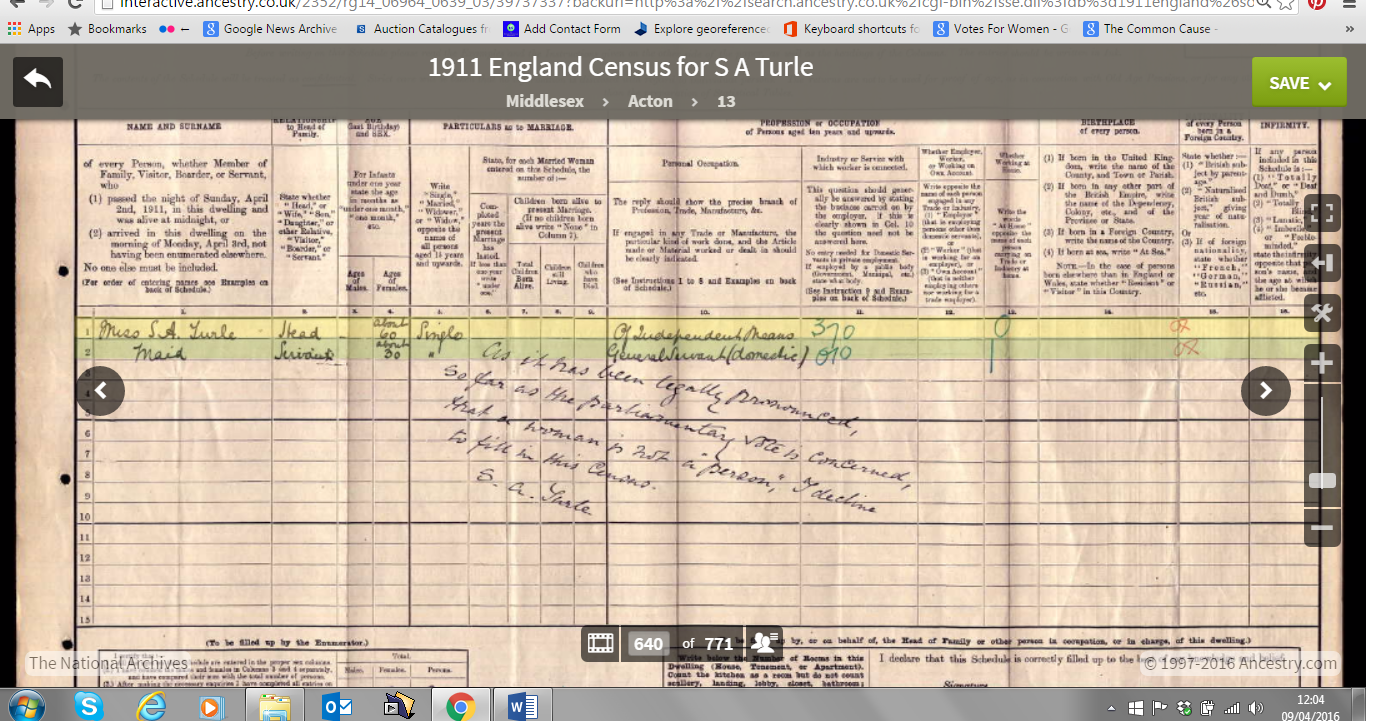 interactive.ancestry.co.uk/2352/rg14_06964_0639_03/39737337?backurl=http%3a%2f%2fsearch.ancestry.co.uk%2fcgi-bin%2fsse.dll%3fdb%3d1911england%26so
Apps Bookmarks Google News Archive Auction Catalogues fr Add Contact Form Explore georeferenced Keyboard shortcuts fo Votes For Women - G The Common Cause -
1911 England Census for S A Turle
SAVE
Middlesex › Acton › 13
NAME AND SURNAME
RELATIONSHIP to Head of Family.
(last Birthday) and SEX.
PARTICULARS as to MARRIAGE.
PROFESSION or OCCUPATION
of Persons aged ten years and upwards.
BIRTHPLACE
of every person.
of every Person born in a Foreign Country.
INFIRMITY.
of every Person, whether Member of
Family, Visitor, Boarder, or Servant,
who
(1) passed the night of Sunday, April
2nd, 1911, in this dwelling and
was alive at midnight, or
(2) arrived in this dwelling on the
morning of Monday, April 3rd, not
having been enumerated elsewhere.
No one else must be included.
(For order of entering names see Examples on
back of Schedule.)
State whether
"Head," or
"Wife," "Son,"
"Daughter," or
other Relative,
"Visitor,"
"Boarder," or
"Servant."
For Infants
under one year
state the age
in months as
"under one month,"
"one month,"
etc.
Ages of Males.
Ages of Females.
Write
"Single,"
"Married,"
"Widower,"
or "Widow,"
opposite the
names of
all persons
aged 15 years
and upwards.
State, for each Married Woman
entered on this Schedule, the
number of :—
Completed years the present Marriage has lasted.
If less than one year write "under one."
Children born alive to
present Marriage.
(If no children born
alive write "None" in
Column 7).
Total Children Born Alive.
Children still Living.
Children who have Died.
Personal Occupation.
The reply should show the precise branch of
Profession, Trade, Manufacture, &c.
If engaged in any Trade or Manufacture, the
particular kind of work done, and the Article
made or Material worked or dealt in should
be clearly indicated.
(See Instructions 1 to 8 and Examples on back
of Schedule.)
Industry or Service with
which worker is connected.
This question should gener-
ally be answered by stating
the business carried on by
the employer. If this is
clearly shown in Col. 10
the question need not be
answered here.
No entry needed for Domestic Ser-
vants in private employment.
If employed by a public body
(Government, Municipal, etc.)
state what body.
(See Instruction 9 and Exam-
ples on back of Schedule.)
Whether Employer,
Worker,
or Working on
Own Account.
Whether Working at Home.
(1) If born in the United King-
dom, write the name of the
County, and Town or Parish.
(2) If born in any other part of
the British Empire, write
the name of the Dependency,
Colony, etc., and of the
Province or State.
(3) If born in a Foreign Country,
write the name of the Country.
(4) If born at sea, write "At Sea."
NOTE.—In the case of persons
born elsewhere than in England or
Wales, state whether "Resident" or
"Visitor" in this Country.
State whether :—
(1) "British sub-
ject by parent-
age,"
(2) "Naturalised
British sub-
ject," giving
year of natu-
ralisation.
Or
(3) If of foreign
nationality,
state whether
"French,"
"German,"
"Russian,"
etc.
1 Miss S. A. Turle Head – about 60 Single Of Independent Means 370 0
2 Maid Servant about 30 " General Servant (domestic) 010 1
As it has been legally pronounced,
so far as the parliamentary vote is concerned,
that a woman is not a "person," I decline
to fill in this Census.
S. A. Turle
4
5
6
7
8
9
10
11
12
13
14
15
(To be filled up by the Enumerator.)
Total.
Males. Females. Persons.
640 of 771
by, or on behalf of, the Head of Family or other person in occupation, or in charge, of this dwelling.)
Write below the Number of Rooms in this
Dwelling (House, Tenement, or Apartment).
Count the kitchen as a room but do not count
scullery, landing, lobby, closet, bathroom;
I declare that this Schedule is correctly filled up to the
Signature
The National Archives
© 1997-2016 Ancestry.com
12:04
09/04/2016